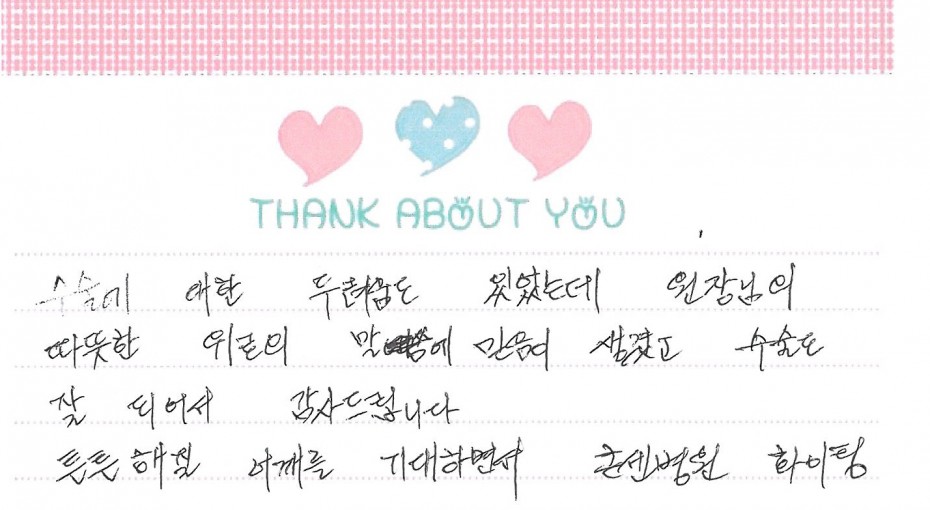 THANK ABOUT YOU
수술에 대한 두려움도 있었는데 원장님의
따뜻한 위로의 말씀에 믿음이 생겼고 수술도
잘 되어서 감사드립니다
튼튼해질 어깨를 기대하면서 굳센병원 화이팅